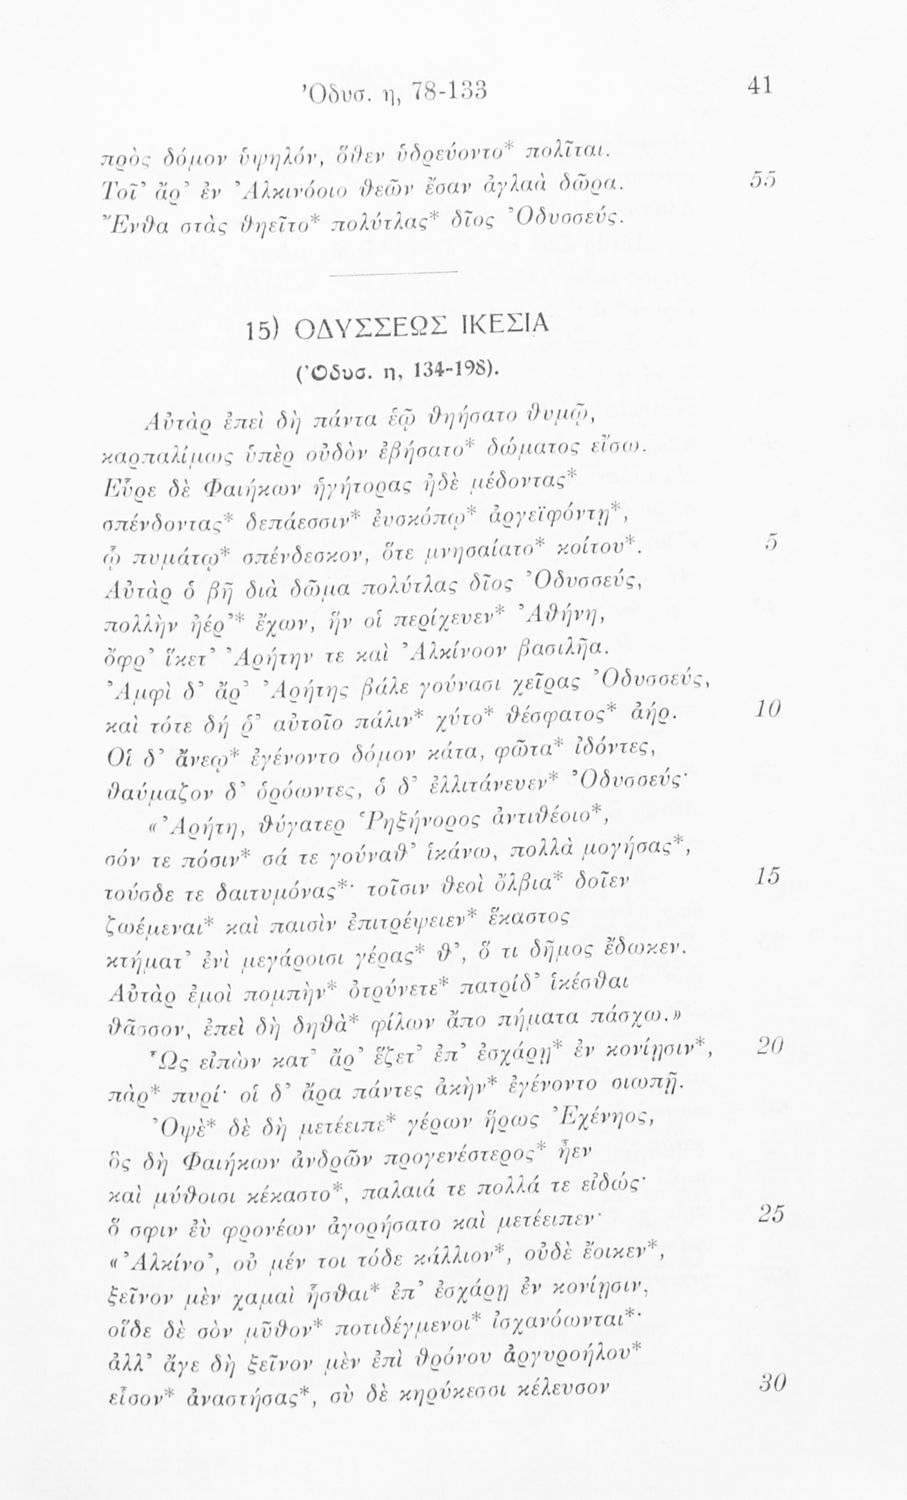 Ὀδυσ. η, 78-133 41
πρὸς δόμον ὑψηλόν, ὅθεν ὑδρεύοντο* πολῖται.
Τοῖ' ἄρ' ἐν Ἀλκινόοιο θεῶν ἔσαν ἀγλαὰ δῶρα. 55
Ἔνθα στὰς θηεῖτο* πολύτλας* δῖος Ὀδυσσεύς.
15) ΟΔΥΣΣΕΩΣ ΙΚΕΣΙΑ
(Ὀδυσ. η, 134-198).
Αὐτὰρ ἐπεὶ δὴ πάντα ἑῷ θηήσατο θυμῷ,
καρπαλίμως ὑπὲρ οὐδὸν ἐβήσατο* δώματος εἴσω.
Εὗρε δὲ Φαιήκων ἡγήτορας ἠδὲ μέδοντας*
σπένδοντας* δεπάεσσιν* ἐυσκόπῳ* ἀργεϊφόντῃ*,
ᾧ πυμάτῳ* σπένδεσκον, ὅτε μνησαίατο* κοίτου*. 5
Αὐτὰρ ὁ βῆ διὰ δῶμα πολύτλας δῖος Ὀδυσσεύς,
πολλὴν ἠέρ'* ἔχων, ἥν οἱ περίχευεν* Ἀθήνη,
ὄφρ' ἵκετ' Ἀρήτην τε καὶ Ἀλκίνοον βασιλῆα.
Ἀμφὶ δ' ἄρ' Ἀρήτης βάλε γούνασι χεῖρας Ὀδυσσεύς,
καὶ τότε δή ῥ' αὐτοῖο πάλιν* χύτο* θέσφατος* ἀήρ. 10
Οἱ δ' ἄνεῳ* ἐγένοντο δόμον κάτα, φῶτα* ἰδόντες,
θαύμαζον δ' ὁρόωντες, ὁ δ' ἐλλιτάνευεν* Ὀδυσσεύς·
«Ἀρήτη, θύγατερ Ῥηξήνορος ἀντιθέοιο*,
σόν τε πόσιν* σά τε γούναθ' ἱκάνω, πολλὰ μογήσας*,
τούσδε τε δαιτυμόνας*· τοῖσιν θεοὶ ὄλβια* δοῖεν 15
ζωέμεναι* καὶ παισὶν ἐπιτρέψειεν* ἕκαστος
κτήματ' ἐνὶ μεγάροισι γέρας* θ', ὅ τι δῆμος ἔδωκεν.
Αὐτὰρ ἐμοὶ πομπὴν* ὀτρύνετε* πατρίδ' ἱκέσθαι
θᾶσσον, ἐπεὶ δὴ δηθὰ* φίλων ἄπο πήματα πάσχω.»
Ὣς εἰπὼν κατ' ἄρ' ἕζετ' ἐπ' ἐσχάρῃ* ἐν κονίῃσιν*, 20
πὰρ* πυρί· οἱ δ' ἄρα πάντες ἀκὴν* ἐγένοντο σιωπῇ.
Ὀψὲ* δὲ δὴ μετέειπε* γέρων ἥρως Ἐχένηος,
ὃς δὴ Φαιήκων ἀνδρῶν προγενέστερος* ἦεν
καὶ μύθοισι κέκαστο*, παλαιά τε πολλά τε εἰδώς·
ὅ σφιν ἐὺ φρονέων ἀγορήσατο καὶ μετέειπεν· 25
«Ἀλκίνο', οὐ μέν τοι τόδε κάλλιον*, οὐδὲ ἔοικεν*,
ξεῖνον μὲν χαμαὶ ἧσθαι* ἐπ' ἐσχάρῃ ἐν κονίῃσιν,
οἵδε δὲ σὸν μῦθον* ποτιδέγμενοι* ἰσχανόωνται*·
ἀλλ' ἄγε δὴ ξεῖνον μὲν ἐπὶ θρόνου ἀργυροήλου*
εἷσον* ἀναστήσας*, σὺ δὲ κηρύκεσσι κέλευσον 30